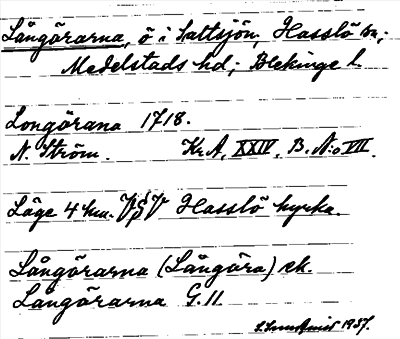 Långörarna, ö i Saltsjön, Hasslö sn,
Medelstads hd, Blekinge l.
Longörana 1718.
N. Ström. Kr.A. XXIV. B. N:o VII.
Läge 4 km. VSV Hasslö kyrka.
Långörarna (Långöra) ek.
Långörarna G.11.
1937.